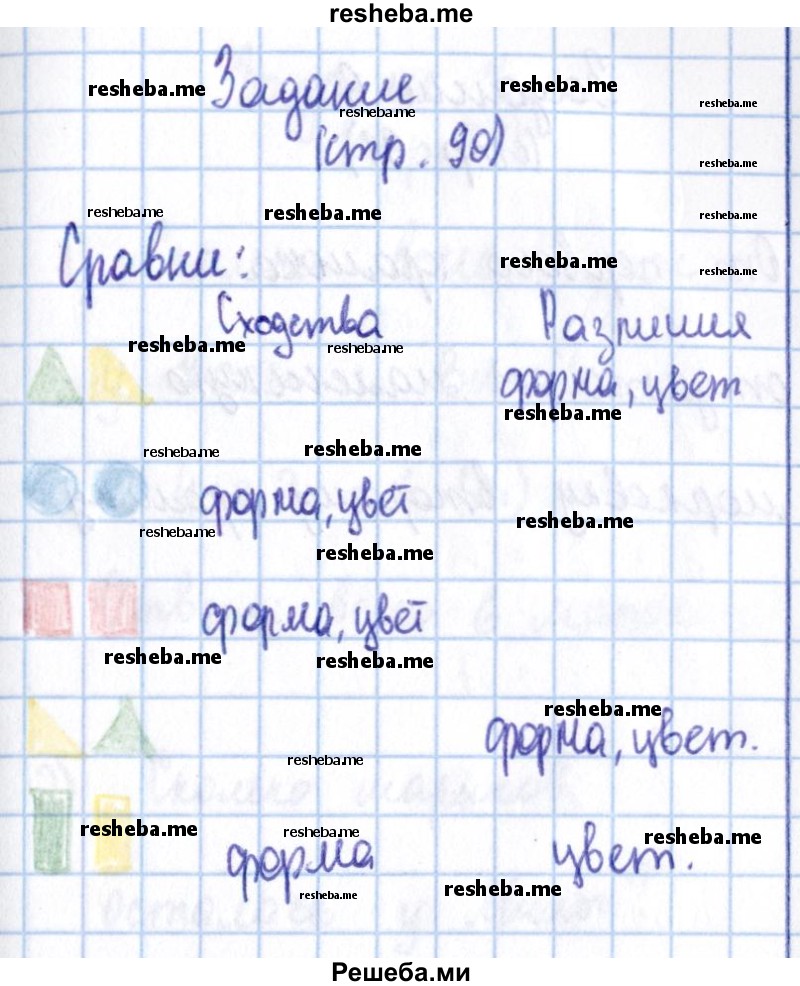 resheba.me
resheba.me resheba.me
Задание
resheba.me resheba.me
(стр. 90)
resheba.me
resheba.me resheba.me resheba.me
Сравни:
resheba.me resheba.me
Сходства Различия
resheba.me resheba.me
форма, цвет
resheba.me
resheba.me resheba.me
форма, цвет
resheba.me
resheba.me
resheba.me
форма, цвет
resheba.me resheba.me
resheba.me
форма, цвет.
resheba.me
resheba.me resheba.me resheba.me
форма цвет.
resheba.me resheba.me
Решеба.ми